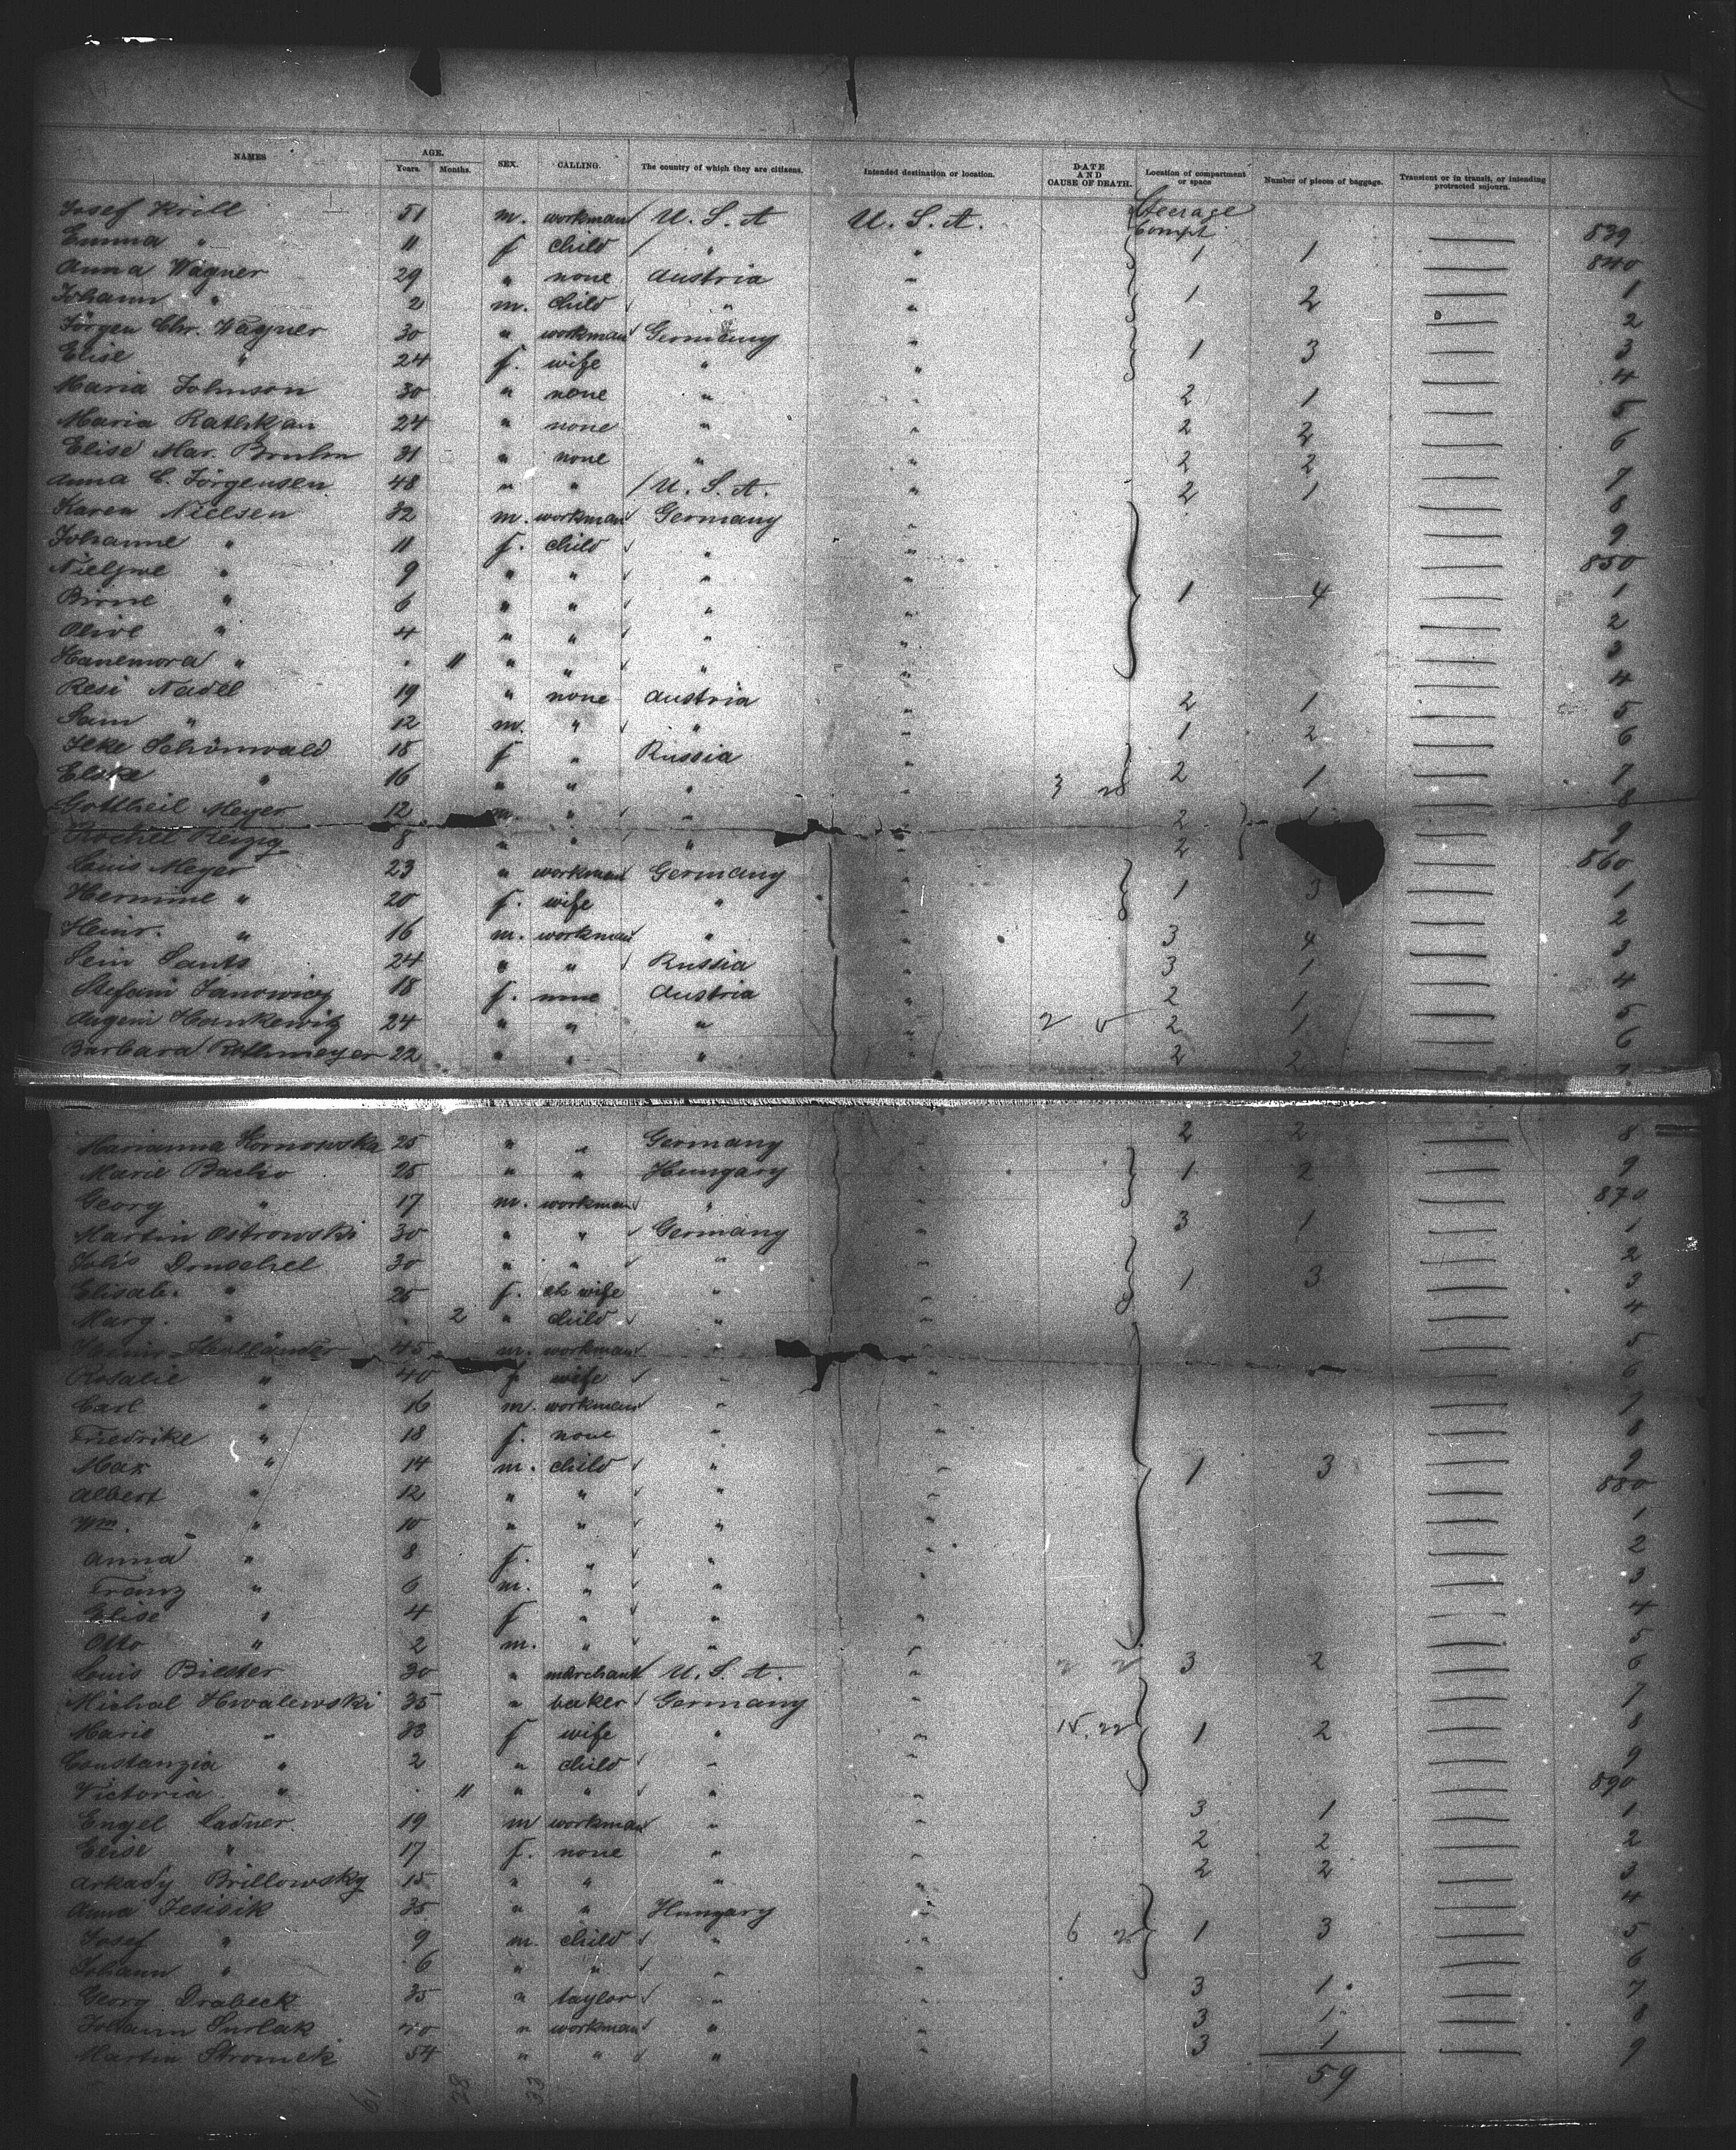 NAMES AGE. Years. Months. SEX. CALLING. The country of which they are citizens. Intended destination or location. DATE AND CAUSE OF DEATH. Location of compartment or space Number of pieces of baggage. Transient or in transit, or intending protracted sojourn.
Josef Krill 51 m. workman U. S. A U. S. A. Steerage Compt 839
Emma " 11 f child " " 1 1 840
Anna Wagner 29 " none Austria " 1
Johann " 2 m. child " " 1 2 2
Jörgen Chr. Wagner 30 " workman Germany " 3
Elise " 24 f. wife " " 1 3 4
Maria Johnson 30 " none " " 2 1 5
Maria Rathkan 24 " none " " 2 2 6
Elise Mar. Bruhn 31 " none " " 2 2 7
Anna C. Jörgensen 48 " " U. S. A. " 2 1 8
Karen Nielsen 32 m. workman Germany " 9
Johanne " 11 f. child " " 850
" 9 " " " " 1 4 1
" 6 " " " " 2
Olive " 4 " " " " 3
Hanemora " . 11 " " " " 4
Resi Nadel 19 " none Austria " 2 1 5
Sam " 12 m. " " " 1 2 6
Ilke Schönwald 18 f " Russia " 7
Elske " 16 " " " " 3 2 1 8
Gottheil Meyer 12 m. " " " 2 1 9
Rochel 8 " " " " 2 860
Louis Meyer 23 " workman Germany " 1
Hermine " 20 f. wife " " 1 3 2
Heinr. " 16 m. workman " " 3 4 3
24 " " Russia " 3 1 4
Stefani Janowicz 18 f. none Austria " 2 1 5
Augeni Hankewitz 24 " " " " 2 2 1 6
Barbara Rothmeyer 22 " " " " 2 2 7
Marianna Kornowska 25 " " Germany " 2 2 8
Marie 25 " " Hungary " 1 2 9
Georg " 17 m. workman " " 870
Martin Ostrowski 30 " " Germany " 3 1 1
Johs Druschel 30 " " " " 2
Elisab. " 25 f. ch wife " " 1 3 3
Marg. " . 2 " child " " 4
45 m. workman " " 5
Rosalie " 40 f wife " " 6
Carl " 16 m. workman " " 7
Friedrike " 18 f. none " " 8
Max " 14 m. child " " 1 3 9
Albert " 12 " " " " 880
Wm. " 10 " " " " 1
Anna " 8 f. " " " 2
Franz " 6 m. " " " 3
Elise " 4 f " " " 4
Otto " 2 m. " " " 5
Louis Biester 30 " merchant U. S. A. " 3 2 6
Michal Kwalewski 35 " baker Germany " 7
Marie " 33 f wife " " 15. 1 2 8
Constanzia " 2 " child " " 9
Victoria " . 11 " " " " 890
Engel Ladner 19 m workman " " 3 1 1
Elise " 17 f. none " " 2 2 2
Arkady Brillowsky 15 " " " " 2 2 3
Anna Jesisik 35 " " Hungary " 4
Josef " 9 m. child " " 6 1 3 5
Johann " 6 " " " " 6
Georg Drabeck 35 " taylor " " 3 1 7
Johann Surlak " workman " " 3 1 8
Martin Stromek 54 " " " " 3 1 9
61 28 33 59